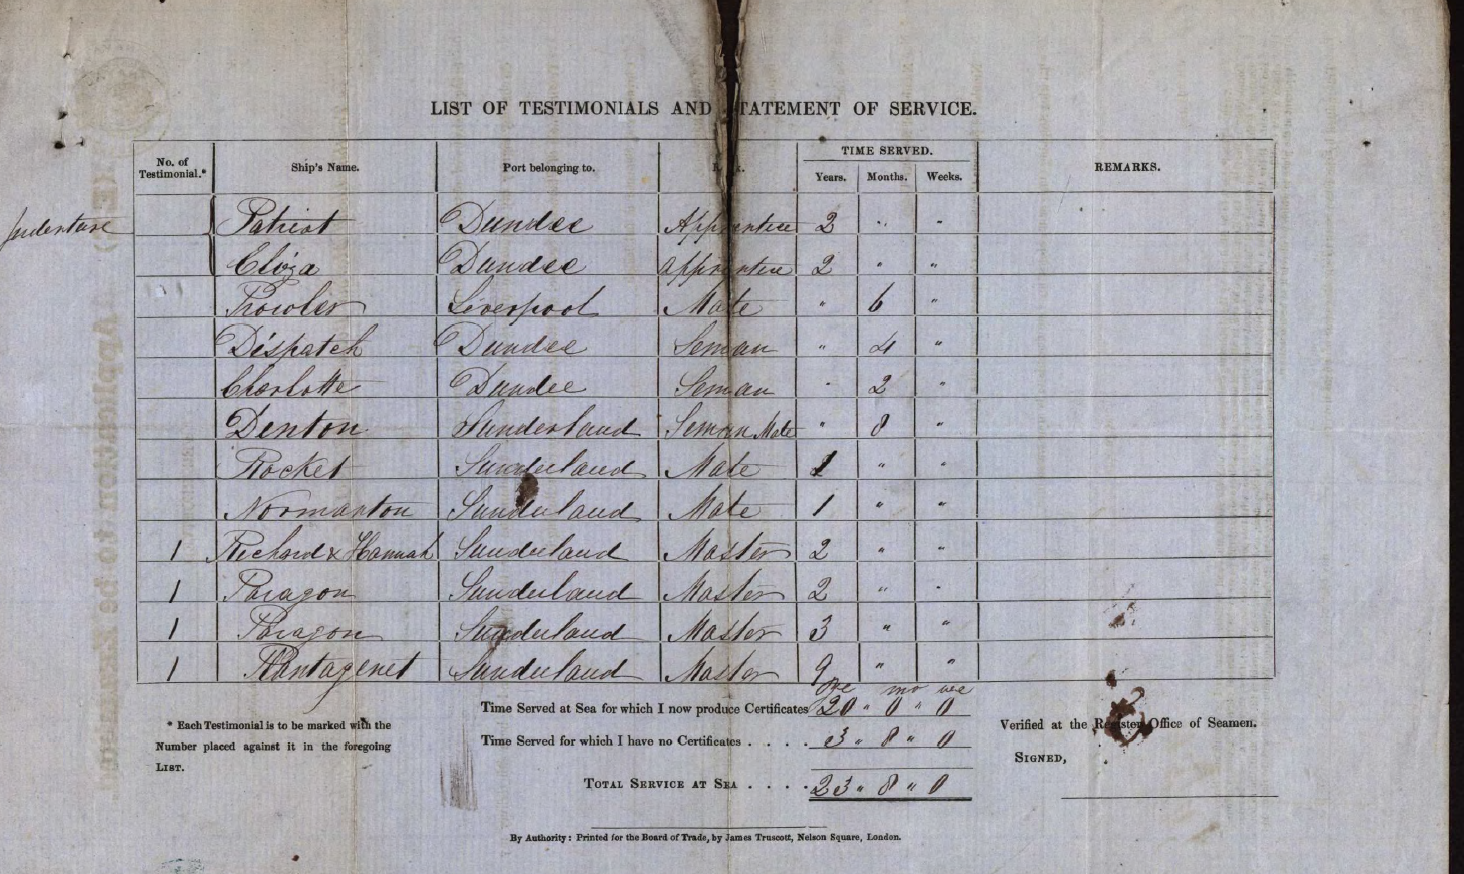 LIST OF TESTIMONIALS AND STATEMENT OF SERVICE.
No. of Testimonial.* Ship's Name. Port belonging to. TIME SERVED. REMARKS.
Years. Months. Weeks.
Indenture Patriot Dundee Apprentice 2 " "
Eliza Dundee apprentice 2 " "
Prowler Liverpool Mate " 6 "
Dispatch Dundee Seman " 4 "
Charlotte Dundee Seman " 2 "
Denton Sunderland Seman Mate " 8 "
Rocket Sunderland Mate 1 " "
Normanton Sunderland Mate 1 " "
1 Richard & Hannah Sunderland Master 2 " "
1 Paragon Sunderland Master 2 " "
1 Paragon Sunderland Master 3 " "
1 Plantagenet Sunderland Master 9 " "
Time Served at Sea for which I now produce Certificates 20 " 0 " 0
Time Served for which I have no Certificates . . . . 3 " 8 " 0
TOTAL SERVICE AT SEA . . . . 23 " 8 " 0
* Each Testimonial is to be marked with the
Number placed against it in the foregoing
LIST.
Verified at the Register Office of Seamen.
SIGNED,
By Authority: Printed for the Board of Trade, by James Truscott, Nelson Square, London.